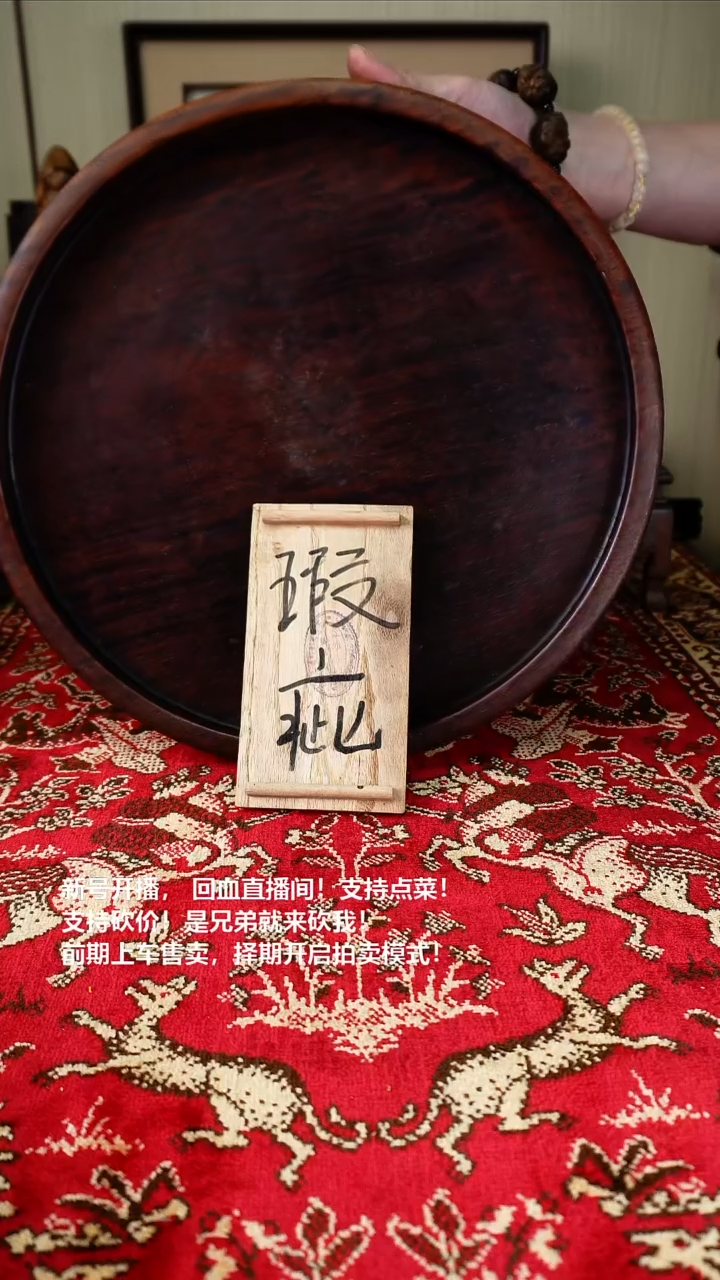 瑕疵
新号开播， 回血直播间！支持点菜！
支持砍价！是兄弟就来砍我！
前期上车售卖，择期开启拍卖模式！